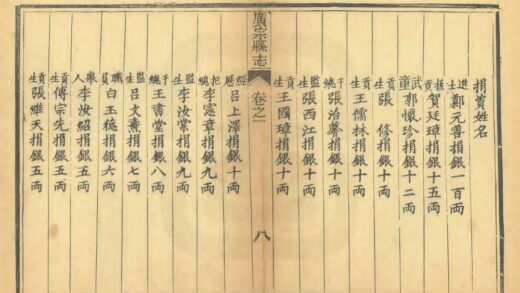 捐資姓名
進士鄭元善捐銀一百兩
拔貢賀廷璋捐銀十五兩
武童郭懷珍捐銀十二兩
貢生張 修捐銀十兩
貢生王儒林捐銀十兩
千總張治馨捐銀十兩
監生張西江捐銀十兩
貢生王國璋捐銀十兩
廣宗縣志 卷之一 八
經歷呂上澤捐銀十兩
把總李憲章捐銀九兩
監生李汝棠捐銀九兩
千總王書堂捐銀八兩
監生呂文壽捐銀七兩
職員白玉德捐銀六兩
舉人李汝紹捐銀五兩
貢生傅宗先捐銀五兩
貢生張維天捐銀五兩